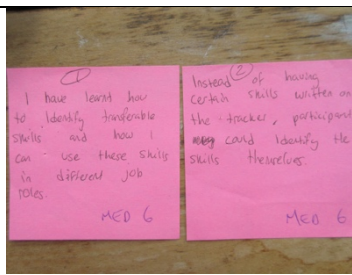 1
I have learnt how
to Identify tranferable
skills and how I
can use these skills
in different job
roles.
MED 6
2
Instead of having
certain skills written on
the tracker, participant
could Identify the
skills themselves.
MED 6